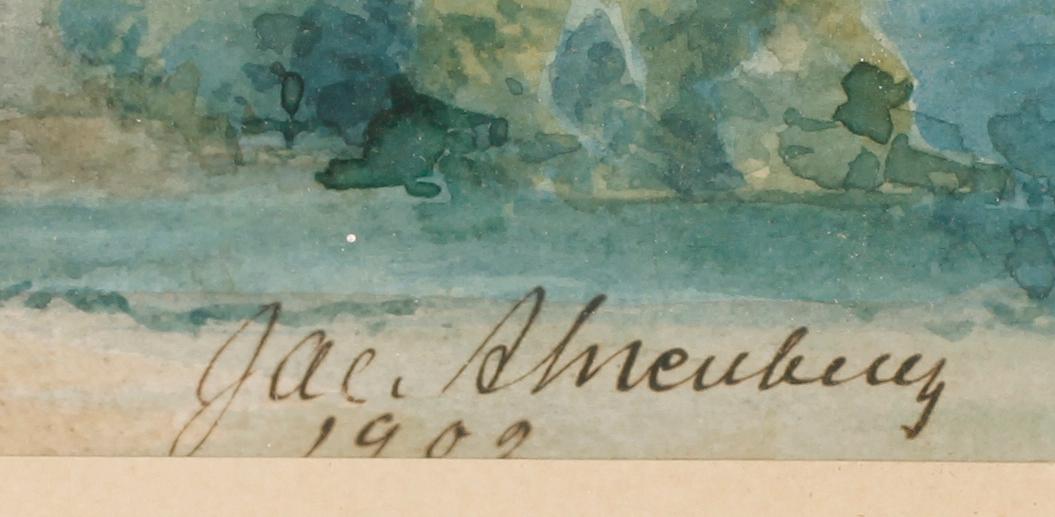 Jac. Ahrenberg
1902